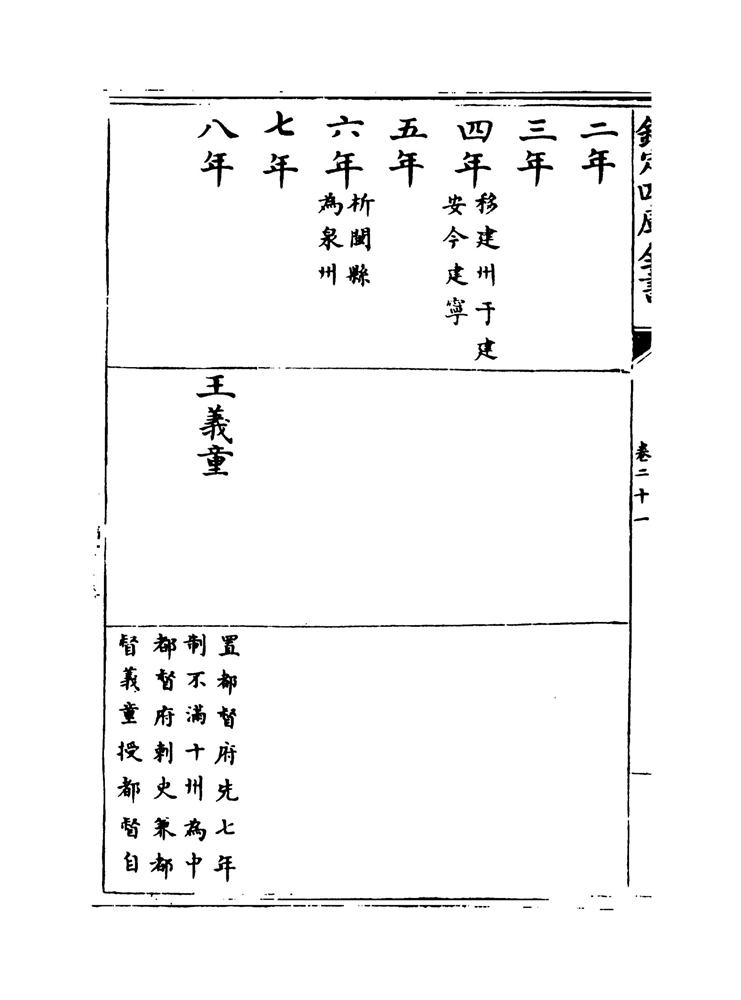 欽定四庫全書
卷二十一
二年
三年
四年
移建州于建
安今建寧
五年
六年
析閩縣
為泉州
七年
八年
王義童
置都督府先七年
制不滿十州為中
都督府刺史兼都
督義童授都督自